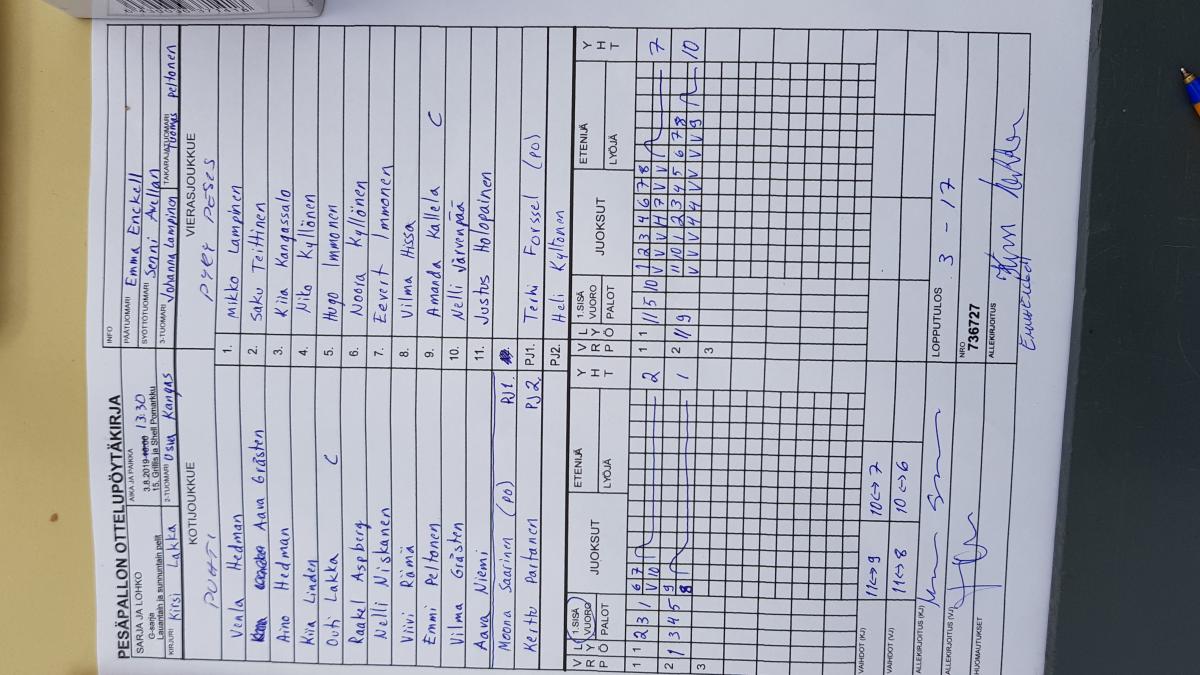 PESÄPALLON OTTELUPÖYTÄKIRJA
SARJA JA LOHKO
G-sarja
Lauantain ja sunnuntain pelit
AIKA JA PAIKKA
3.8.2019 10:00 13:30
15. Grillis ja Shell Pomarkku
INFO
PÄÄTUOMARI Emma Enckell
SYÖTTÖTUOMARI Senni Avellan
KIRJURI Kirsi Lakka
2-TUOMARI Osua Kangas
3-TUOMARI Johanna Lampinen
TAKARAJATUOMARI Tuomas Peltonen
KOTIJOUKKUE
VIERASJOUKKUE
Venla Hedman 1. Mikko Lampinen
Aava Grästen 2. Saku Teittinen
Aino Hedman 3. Kiia Kangassalo
Kiia Linden 4. Niko Kyllönen
Outi Lakka C 5. Hugo Immonen
Raakel Aspberg 6. Noora Kyllönen
Nelli Niskanen 7. Eevert Immonen
Viivi Rämä 8. Vilma Hissa
Emmi Peltonen 9. Amanda Kallela C
Vilma Grästen 10. Nelli Järvenpää
Aava Niemi 11. Justus Holopainen
Meona Saarinen (PO) PJ1.
Kerttu Partanen PJ2 PJ1. Terhi Forssel (PO)
PJ2. Heli Kyllönen
V R P L Y Ö 1.SISÄ VUORO PALOT JUOKSUT ETENIJÄ LYÖJÄ Y H T
V R P L Y Ö 1.SISÄ VUORO PALOT JUOKSUT ETENIJÄ LYÖJÄ Y H T
1 1 2 3 1 6 7 2
V 10
1 1 11 5 10 1 2 3 4 6 7 8 7
V V V H 7 V V
2 1 3 4 5 9 1
8
2 11 9 11 10 1 2 3 4 5 6 7 8 10
V V V 4 4 V V V V 9
3
3
VAIHDOT (KJ) 11<->9 10<->7
VAIHDOT (VJ) 11<->8 10<->6
ALLEKIRJOITUS (KJ)
LOPPUTULOS 3 - 17
ALLEKIRJOITUS (VJ)
NRO
736727
HUOMAUTUKSET
ALLEKIRJOITUS